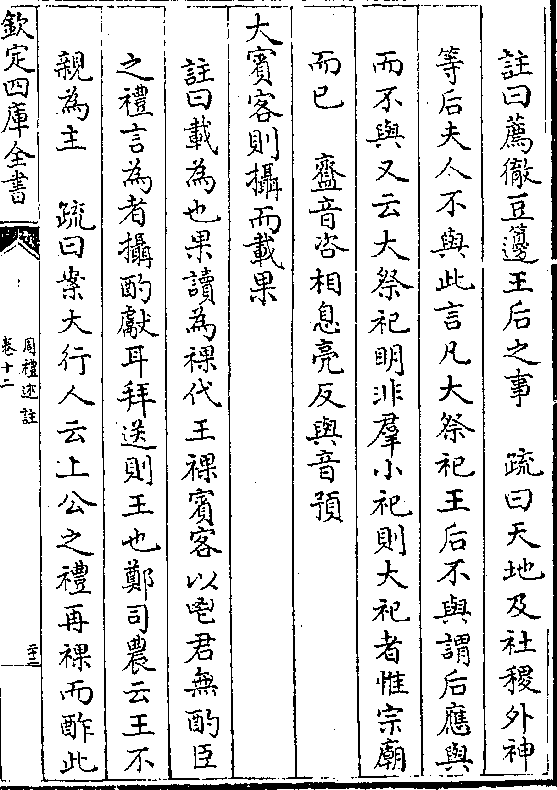 註曰薦徹豆籩王后之事　疏曰天地及社稷外神
等后夫人不與此言凡大祭祀王后不與謂后應與
而不與又云大祭祀明非羣小祀則大祀者惟宗廟
而已　齍音咨相息亮反與音預
大賓客則攝而載果
註曰載為也果讀為祼代王祼賓客以鬯君無酌臣
之禮言為者攝酌獻耳拜送則王也鄭司農云王不
親為主　疏曰案大行人云上公之禮再祼而酢此
欽定四庫全書
周禮述註
卷十二